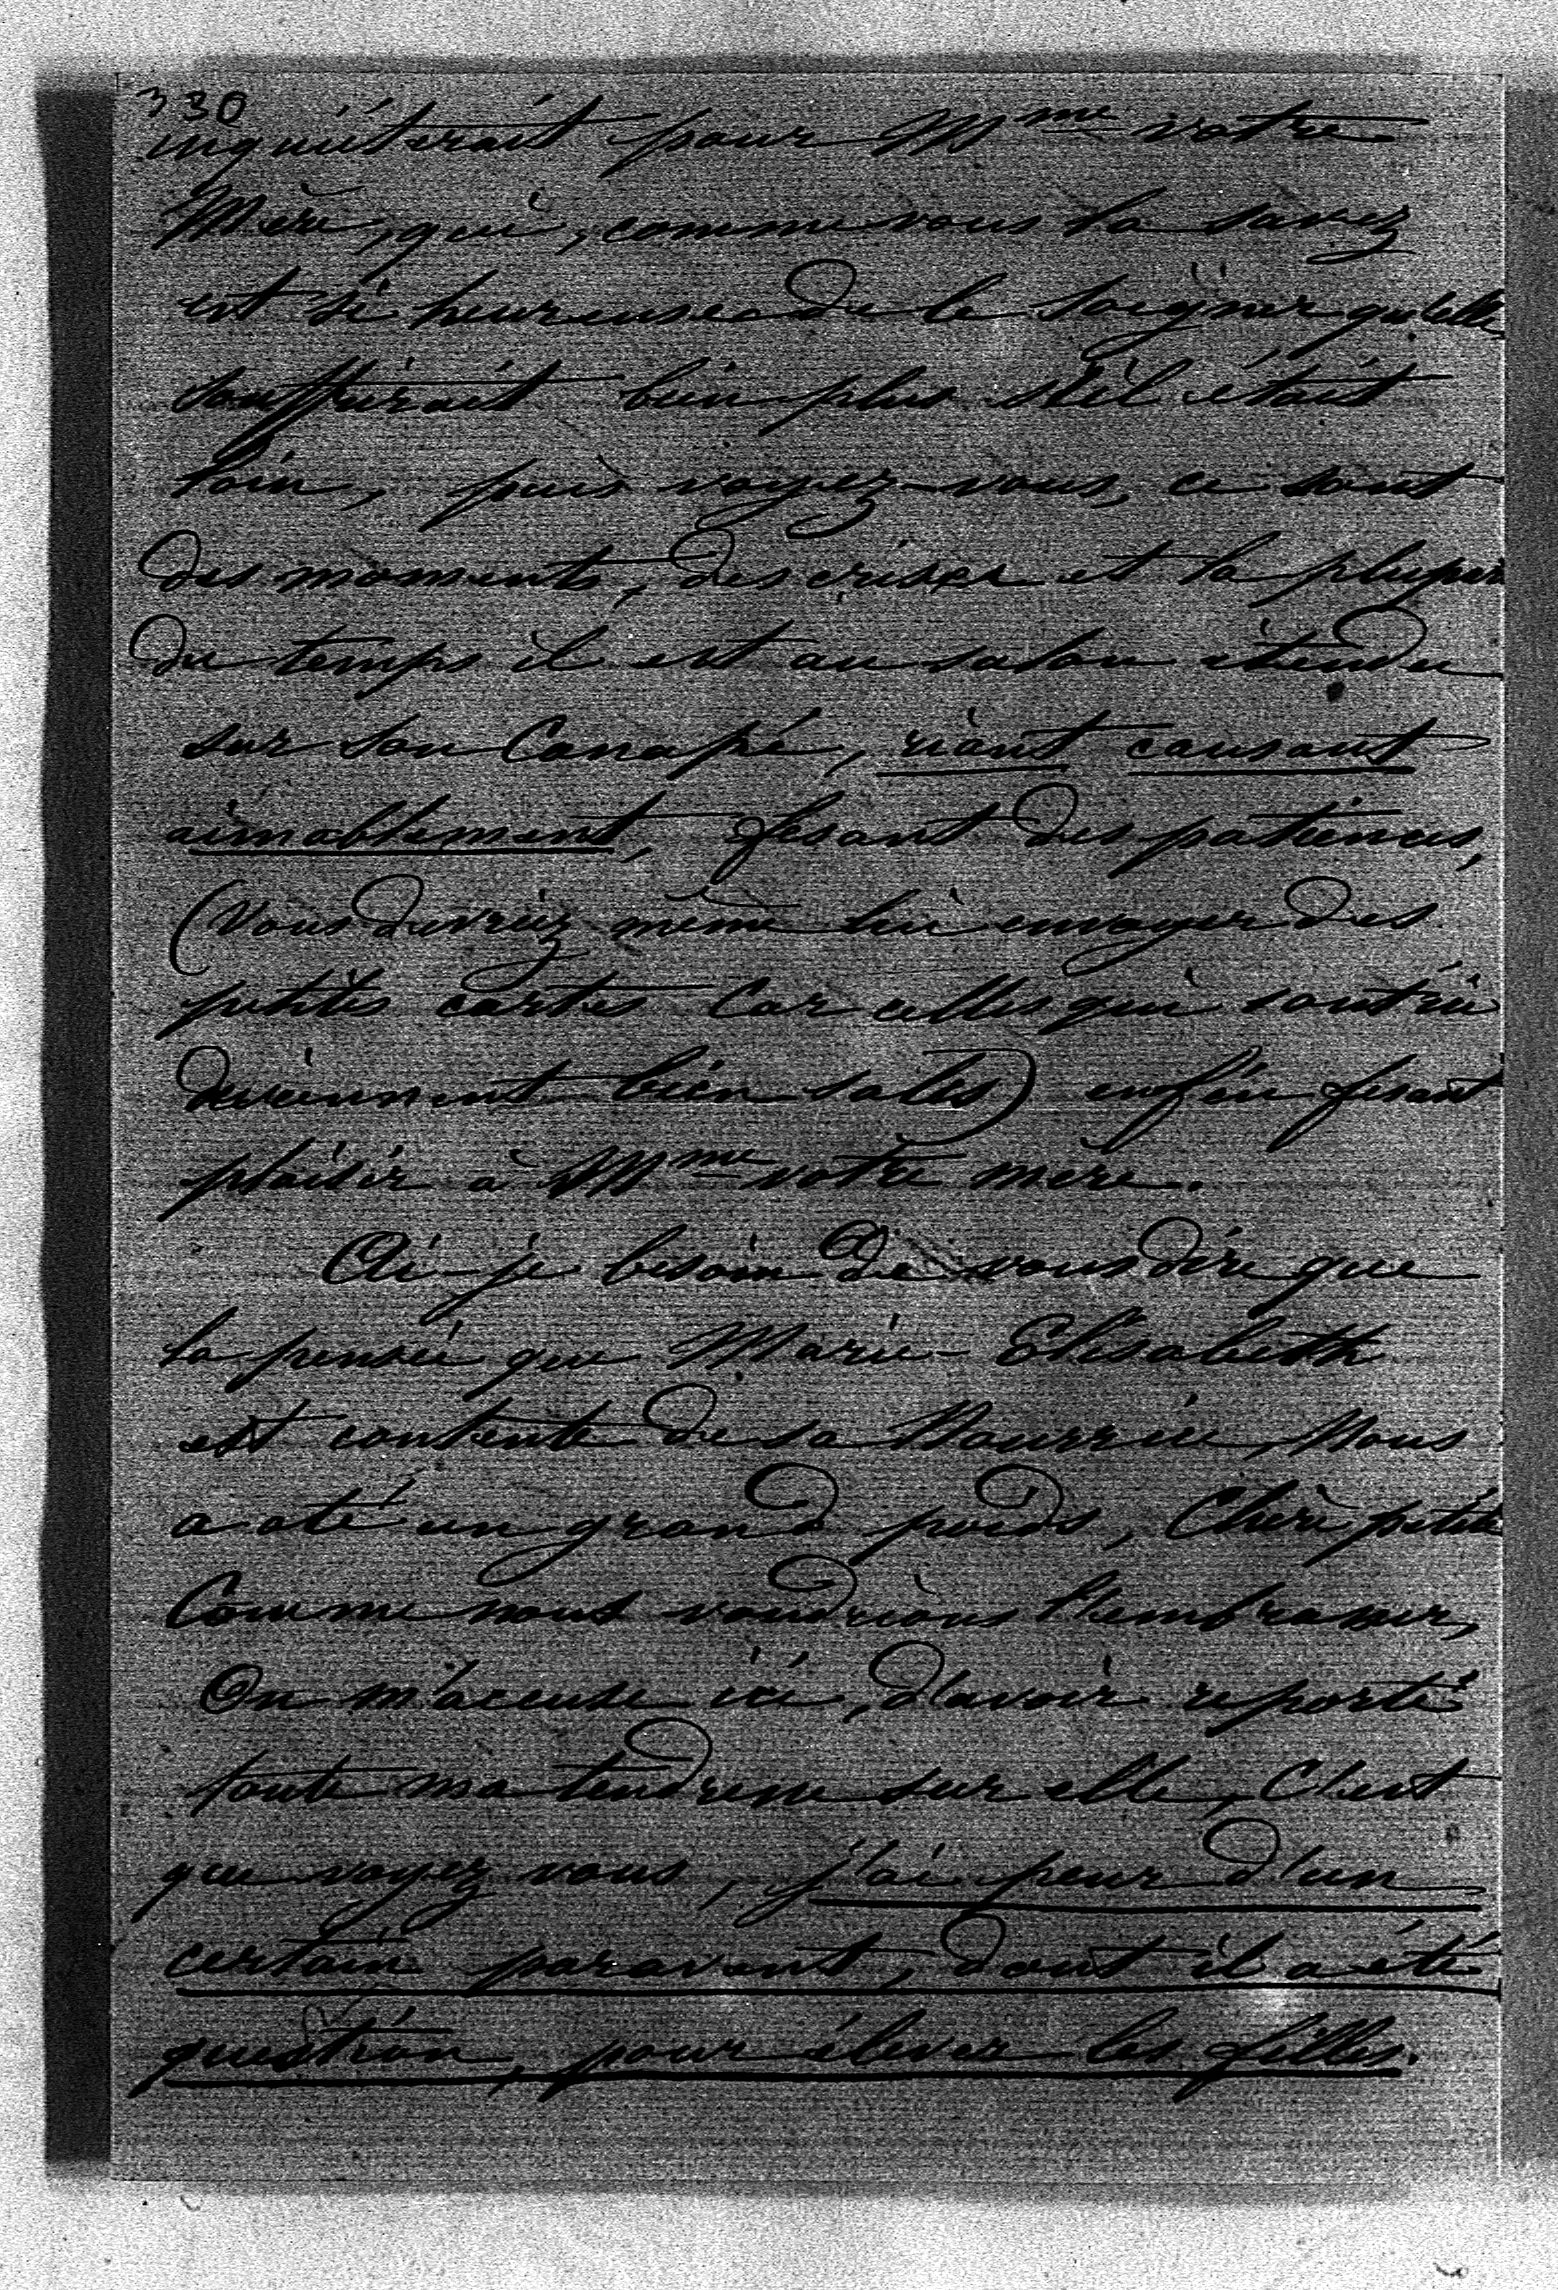 330
inquièterait pour Mme votre
Mère, qui, comme vous la savez
est si heureuse de le soigner qu'elle
souffrirait bien plus s'il était
loin, puis voyez-vous, ce sont
des moments, des crises et la plupar
du temps il est au salon étendu
sur son Canapé, riant causant
aimablement, fesant des patiences,
(vous devriez même lui envoyer des
petites cartes Car celles qui sont ici
deviennent bien sales) enfin fesant
plaisir à Mme votre mère.
Ai-je besoin de vous dire que
la pensée que Marie-Elisabeth
est contente de sa Nourrice, Nous
a oté un grand poids, Chère petite
Comme nous voudrions l'embrasser,
On m'accuse ici, d'avoir reporté
toute ma tendresse sur elle, C'est
que voyez vous, j'ai peur d'un
certain paravent, dont il a été
question, pour élever les filles.